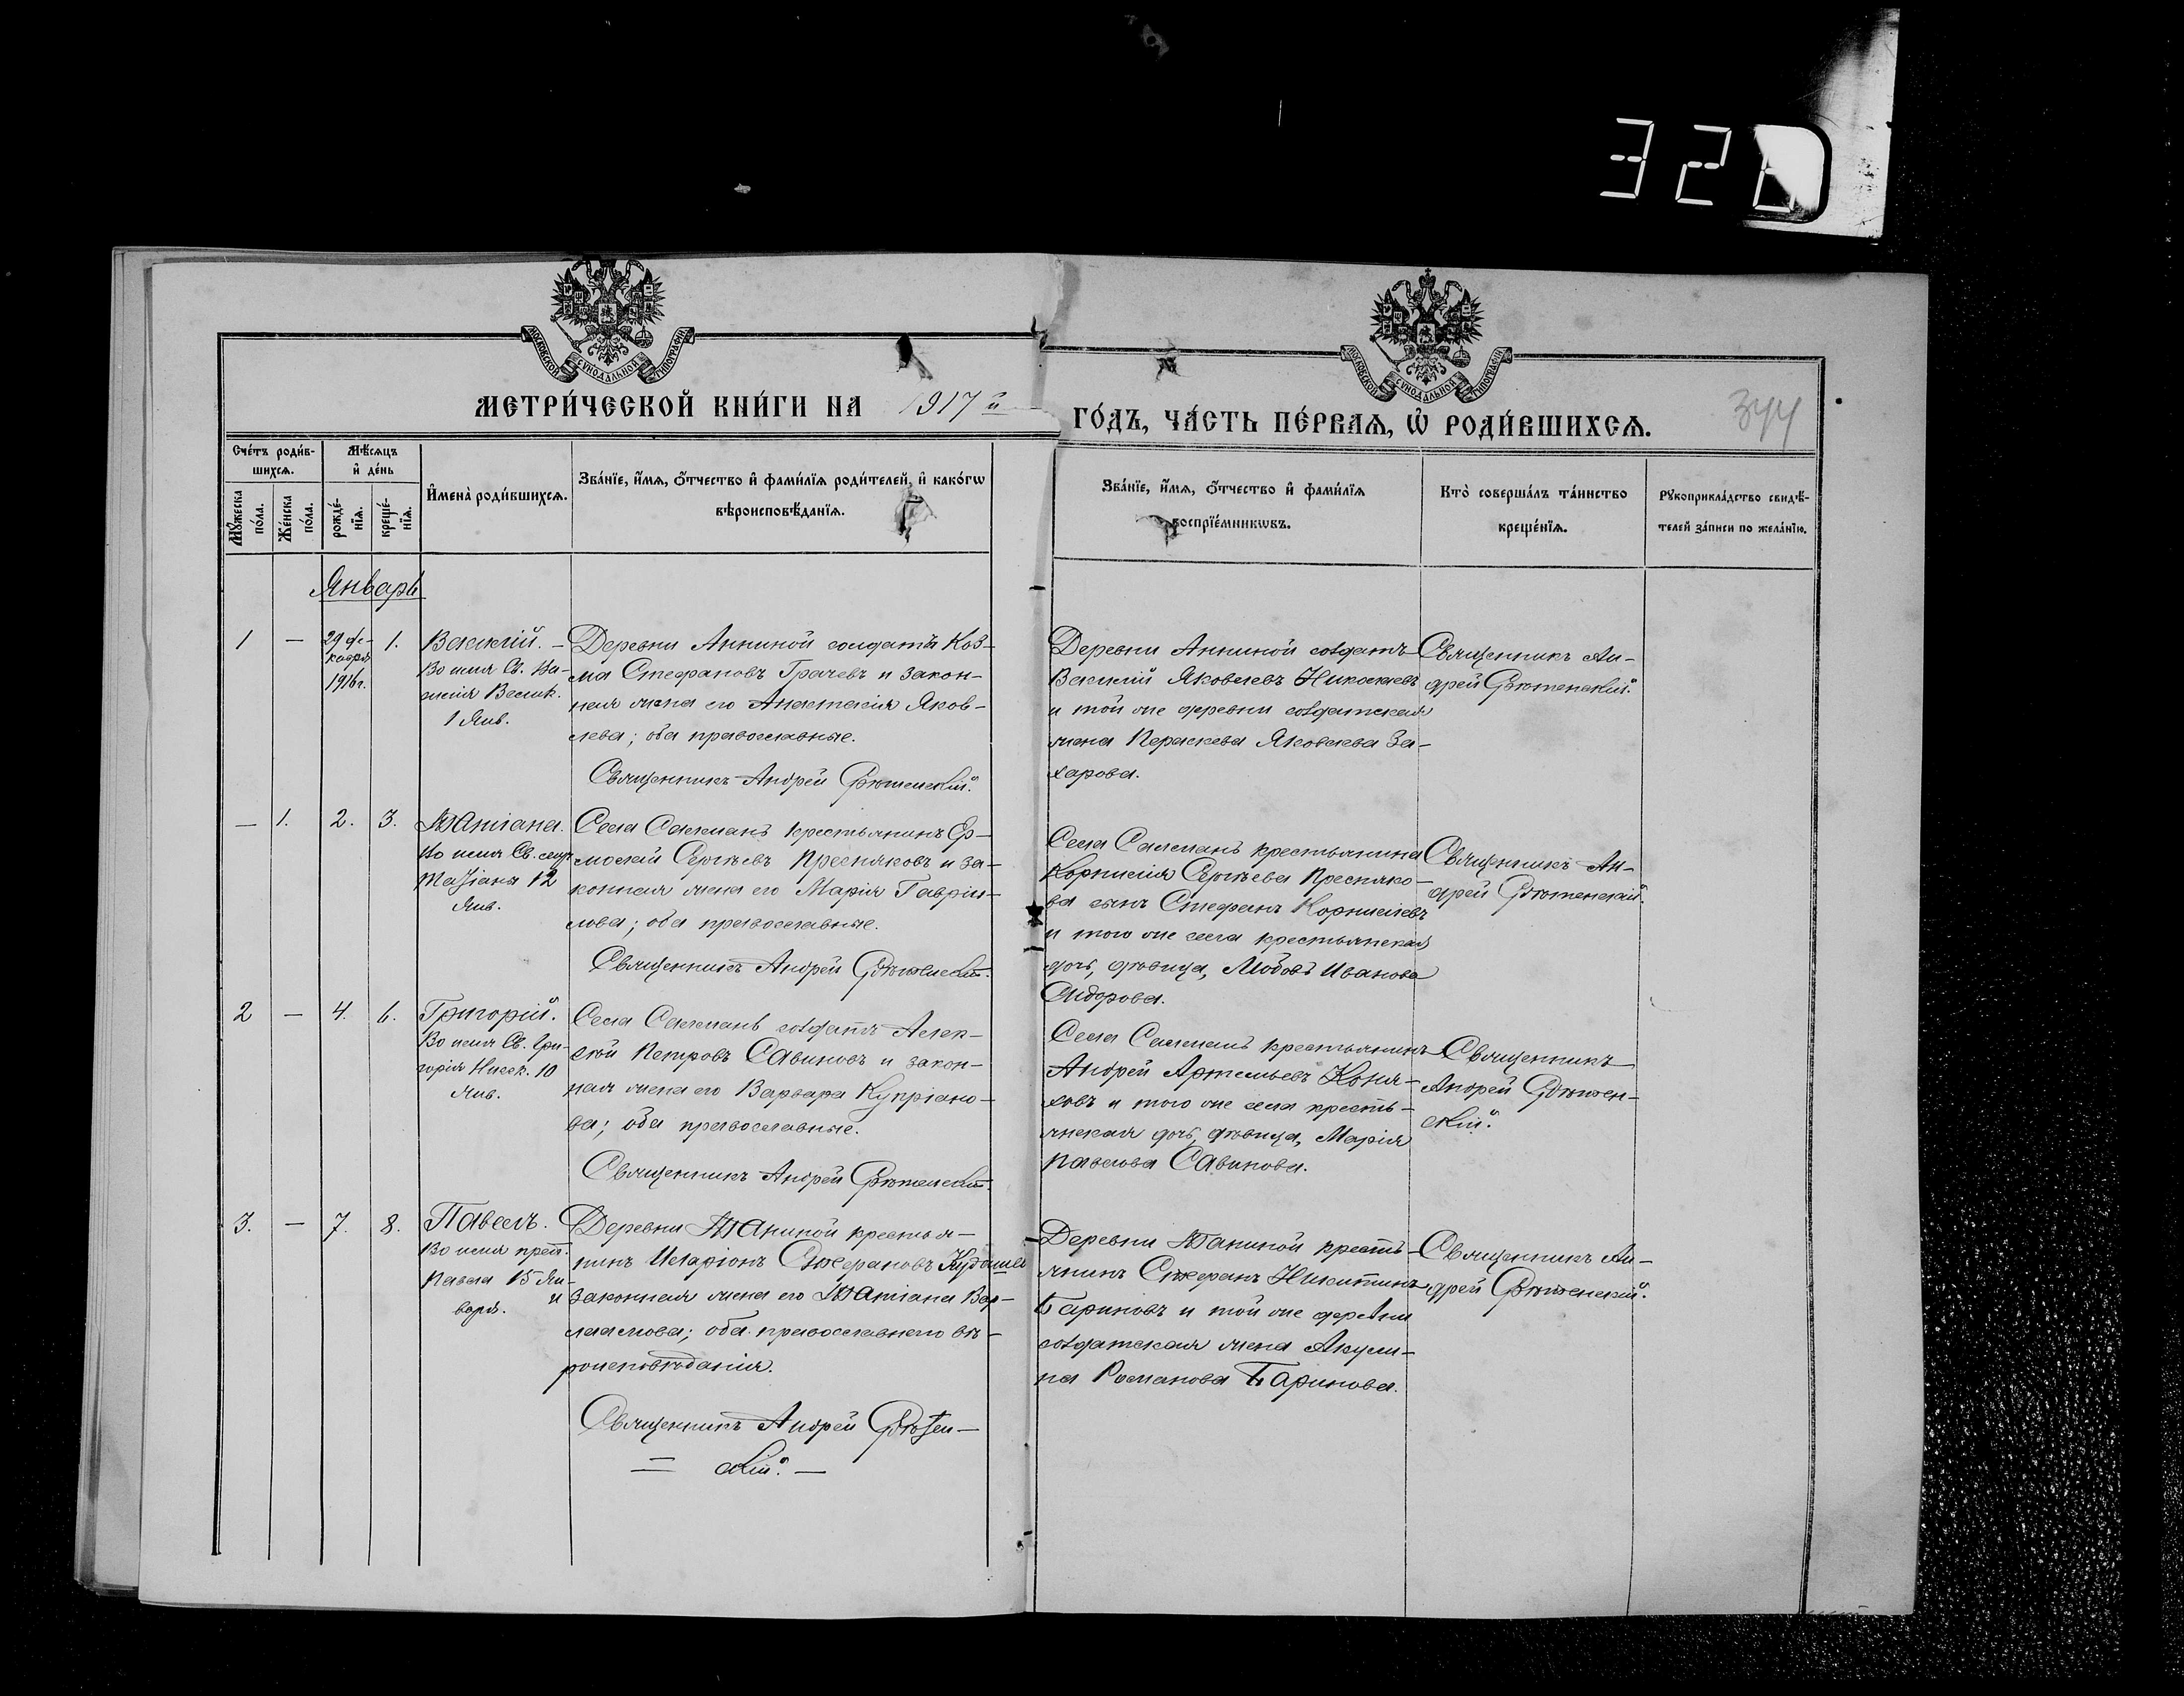 32
МОСКОВСКОЙ СѴНОДАЛЬНОЙ ТИПОГРАФІИ
МОСКОВСКОЙ СѴНОДАЛЬНОЙ ТИПОГРАФІИ
МЕТРИ́ЧЕСКОЙ КНИ́ГИ НА 1917 й
ГО́ДЪ, ЧА́СТЬ ПЕ́РВАѦ, Ѡ҆ РОДИ́ВШИХСѦ.
344
Сче́тъ роди́в-
шихсѧ.
Мꙋ́жеска
по́ла.
Же́нска
по́ла.
Мѣ́сѧцъ
и҆ де́нь
рожде́-
нїѧ.
креще́-
нїѧ.
И҆мена̀ роди́вшихсѧ.
Зва́нїе, и҆́мѧ, ѻ҆́тчество и҆ фами́лїѧ роди́телей, и҆ како́гѡ
вѣроисповѣ́данїѧ.
Зва́нїе, и҆́мѧ, ѻ҆́тчество и҆ фами́лїѧ
воспрїе́мникѡвъ.
Кто̀ соверша́лъ та́инство
креще́нїѧ.
Рꙋкоприкла́дство свидѣ́-
телей за́писи по жела́нїю.
Январь
1 — 29 де-
кабря
1916 г.
1.
Василій. —
Во имя Св. Ва-
силія Велик.
1 Янв.
Деревни Анниной солдатъ Коз-
ма Стефановъ Грачевъ и закон-
ная жена его Анастасія Яков-
лева; оба православные.
Священникъ Андрей
Деревни Анниной солдатъ
Василій Яковлевъ Николаевъ
и той же деревни солдатская
жена Параскева Яковлева За-
харова.
Священникъ Ан-
дрей
— 1. 2. 3.
Татіана.
Во имя Св. муч.
Татіаны 12
Янв.
Села Салманъ крестьянинъ Ер-
молай Сергѣевъ Пресняковъ и за-
конная жена его Марія Гаврии-
лова; оба православные.
Священникъ Андрей
Села Салманъ крестьянина
Корнилія Сергѣева Преснякo-
ва сынъ Стефанъ Корниліевъ
и того же села крестьянская
дочь, дѣвица, Любовь Иванова
Сидорова.
Священникъ Ан-
дрей
2 — 4. 6.
Григорій.
Во имя Св. Гри-
горія Нисск. 10
Янв.
Села Салманъ солдатъ Алек-
сѣй Петровъ Савиновъ и закон-
ная жена его Варвара Купріано-
ва; оба православные.
Священникъ Андрей
Села Салманъ крестьянинъ
Андрей Артемьевъ Коня-
ховъ и того же села кресть-
янская дочь, дѣвица, Марія
Павлова Савинова.
Священникъ
Андрей
скій.
3. — 7. 8.
Павелъ.
Во имя преп.
Павла 15 Ян-
варя.
Деревни Таниной крестья-
нинъ Иларіонъ Стефановъ
и законная жена его Татіана Вар-
лаамова; оба православнаго вѣ-
роисповѣданія.
Священникъ Андрей
скій. —
Деревни Таниной кресть-
янинъ Стефанъ Никитинъ
Бариновъ и той же деревни
солдатская жена Акули-
на Романова Баринова.
Священникъ Ан-
дрей